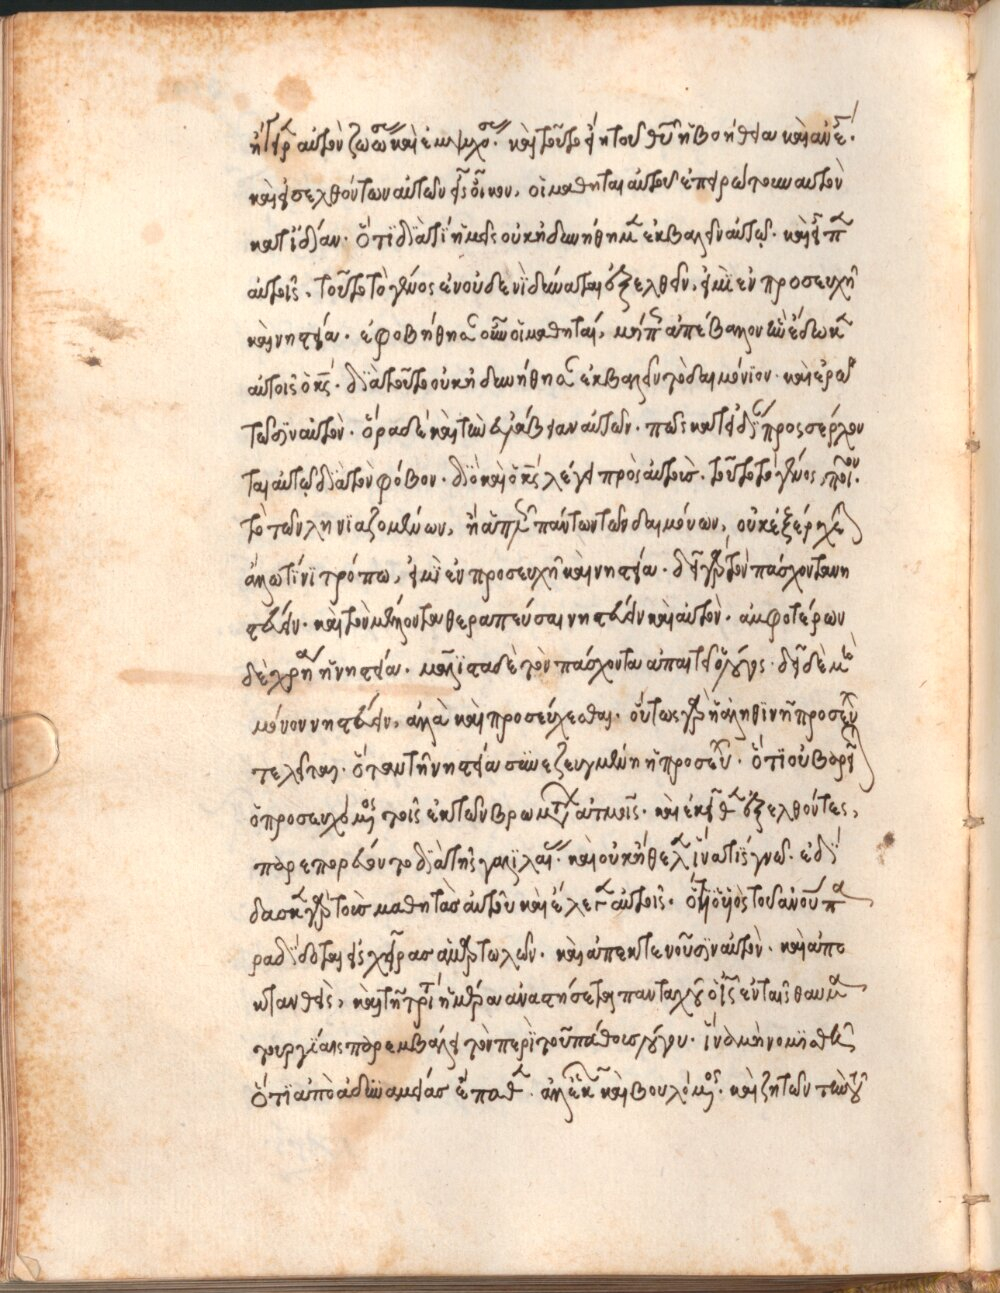 ἤγειρεν αὐτὸν ζῶσαν καὶ ἔμψυχος. καὶ τοῦτο ἦν ἡ τοῦ θεοῦ βοήθεια καὶ ἀνέστη.
καὶ εἰσελθόντων αὐτῶν εἰς οἶκον, οἱ μαθηταὶ αὐτοῦ ἐπερώτουν αὐτὸν
κατιδίαν. ὅτι διατί ἡμεῖς οὐκ ἠδυνήθημεν ἐκβαλεῖν αὐτῷ. καὶ εἶπεν
αὐτοῖς. τοῦτο τὸ γένος ἐν οὐδενὶ δύναται ἐξελθεῖν, εἰ μὴ ἐν προσευχῇ
καὶ νηστεία. ἐφοβήθησαν οὖν οἱ μαθηταί, μήπως ἀπέβαλον ἣν ἔδωκεν
αὐτοῖς ὁ κς. διὰ τοῦτο οὐκ ἠδυνήθησαν ἐκβαλεῖν τὸ δαιμόνιον. καὶ ἐρω
τῶσιν αὐτὸν. ὅρα δὲ καὶ τὴν εὐλάβειαν αὐτῶν. πῶς κατιδίαν προσέρχον
ται αὐτῷ διὰ τὸν φόβον. διὸ καὶ ὁ κς λέγει πρὸς αὐτούς. τοῦτο τὸ γένος, ποῖον.
τὸ τῶν σεληνιαζομένων, ἢ ἁπλῶς πάντων τῶν δαιμόνων, οὐκ ἐξέρχεται
ἄλλῳ τινὶ τρόπω, εἰ μὴ ἐν προσευχῇ καὶ νηστεία. δεῖ γὰρ τὸν πάσχοντα νη
στεύειν. καὶ τὸν μέλλοντα θεραπεύσαι νηστεύειν καὶ αὐτὸν. ἀμφοτέρων
δὲ χρεία ἡ νηστεία. μάλιστα δὲ τὸν πάσχοντα ἀπαιτεῖ ὁ λόγος. δεῖ δὲ μὴ
μόνον νηστεύειν, ἀλλὰ καὶ προσεύχεσθαι. οὕτως γὰρ ἡ ἀληθινὴ προσευχὴ
τελεῖται. ὅταν τῆ νηστεία συνεζευγμένη ἡ προσευχή. ὅτι οὐ βαρεῖται
ὁ προσευχόμενος τοῖς ἐκ τῶν βρωμάτων ἀτμοῖς. καὶ ἐκεῖθεν ἐξελθόντες,
παρεπορεύοντο διὰ τῆς γαλιλαίας. καὶ οὐκ ἤθελεν ἵνα τὶς γνῷ. ἐδί
δασκεν γὰρ τοὺς μαθητὰς αὐτοῦ καὶ ἔλεγεν αὐτοῖς. ὅτι ὁ υἱὸς τοῦ ἀνου πα
ραδίδοται εἰς χεῖρας ἁμαρτωλῶν. καὶ ἀποκτενοῦσιν αὐτὸν. καὶ ἀπο
κτανθεὶς, καὶ τῆ τρίτη ἡμέρα ἀναστήσεται πανταχοῦ ὁ ἰς ἐν ταῖς θαυμα
τουργίαις παρεμβάλλει τὸν περὶ τοῦ πάθους λόγον. ἵνα μὴ νομισθῇ
ὅτι ἀπὸ ἀδυναμίας ἔπαθεν. ἀλλὰ ἑκὼν καὶ βουλόμενος. καὶ ζητῶν τὴν τοῦ